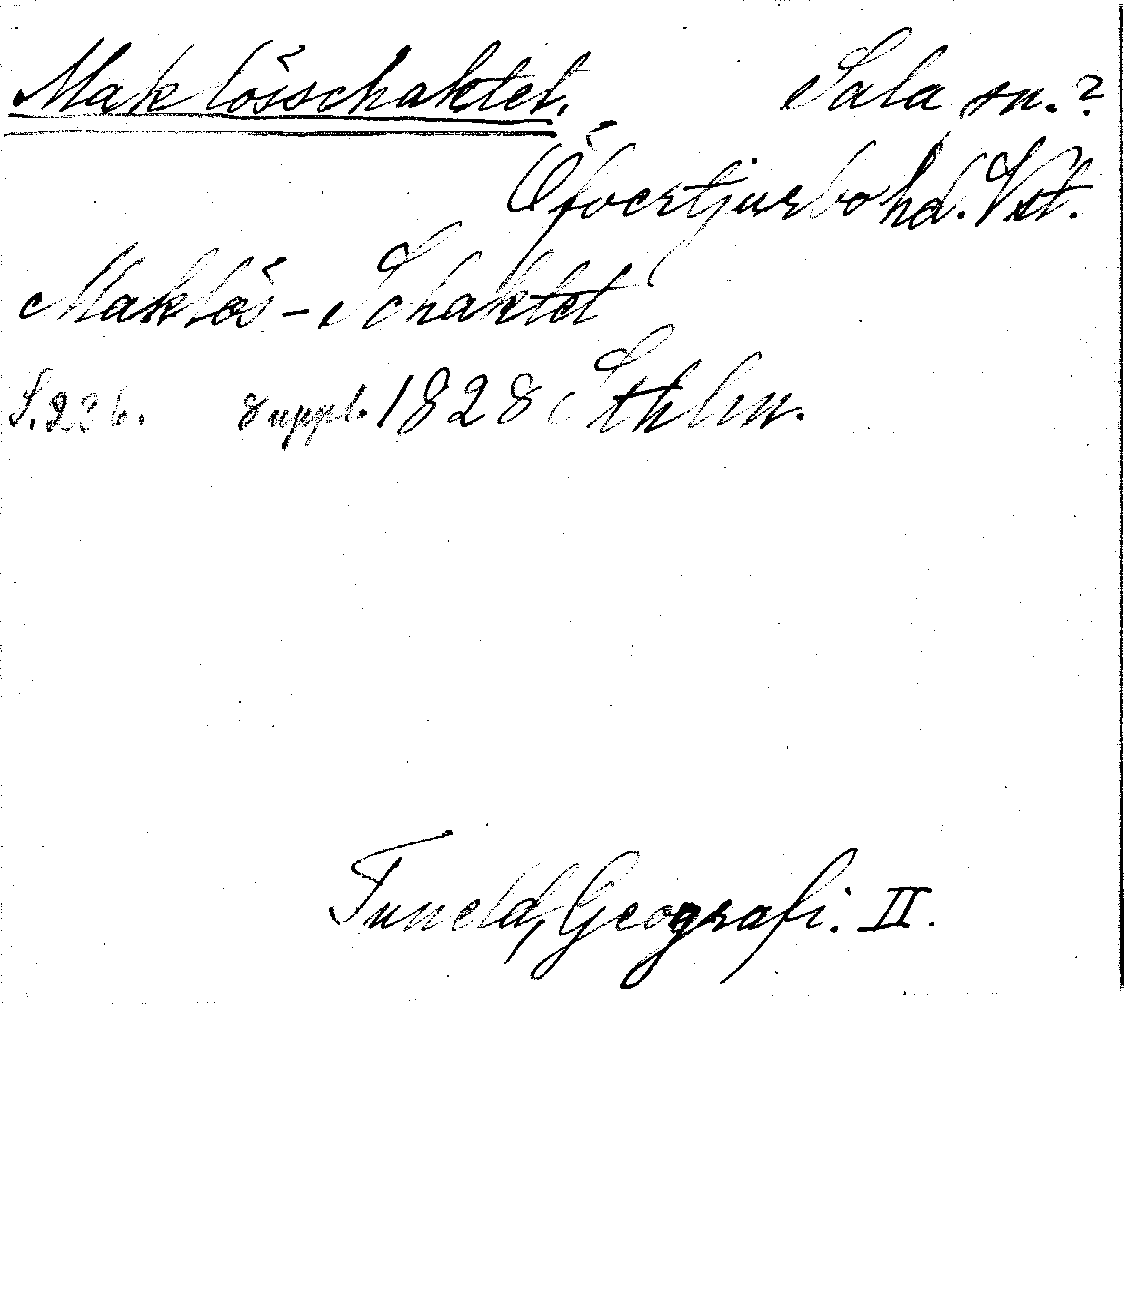 Maklösschaktet. Sala sn.?
Öfvertjurbo hd. Vst.
Maklös-Schaktet
S. 236. suppl. 1828 Sthlm.
Tuneld, Geografi. II.